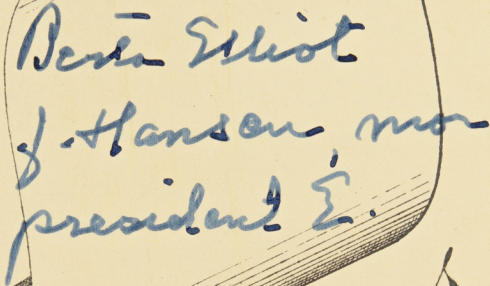 Berta Elliot
f. Hanson, mor
president E.